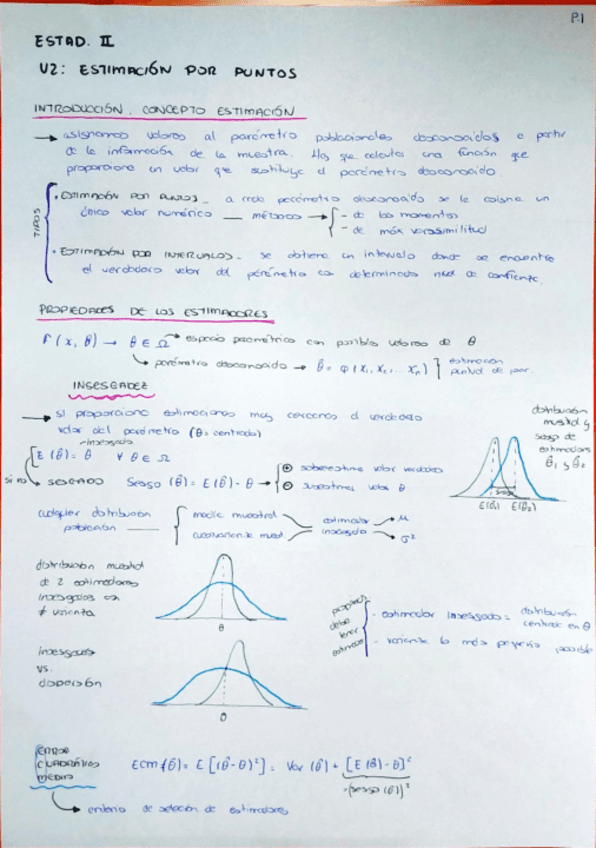 P.1
ESTAD. II
U2: ESTIMACIÓN POR PUNTOS
INTRODUCCIÓN. CONCEPTO ESTIMACIÓN
→ asignamos valores al parámetro poblacionales desconocidos a partir
de la información de la muestra. Hay que calcular una función que
proporcione un valor que sustituye el parámetro desconocido.
TIPOS
· ESTIMACIÓN POR PUNTOS_ a cada parámetro desconocido se le asigna un
único valor numérico — métodos → - de los momentos
- de máx verosimilitud
· ESTIMACIÓN POR INTERVALOS_ se obtiene un intervalo donde se encuentre
el verdadero valor del parámetro con determinado nivel de confianza.
PROPIEDADES DE LOS ESTIMADORES
F(x, θ) → θ ∈ Ω → espacio paramétrico con posibles valores de θ
↳ parámetro desconocido → θ̂ = φ(x₁, x₂, ... xₙ) } estimación
puntual de par.
INSESGADEZ
→ si proporciona estimaciones muy cercanas al verdadero
valor del parámetro (θ = centrado)
insesgado
E(θ̂) = θ ∀ θ ∈ Ω
si no → SESGADO Sesgo (θ̂) = E(θ̂) - θ → ⊕ sobreestima valor verdadero
⊖ subestima valor θ
distribución
muestral y
sesgo de
estimadores
θ̂₁ y θ̂₂
sesgo
E(θ̂₁) E(θ̂₂)
cualquier distribución
población — media muestral
cuasivarianza muest.
estimador
insesgado
μ
σ²
distribución muestral
de 2 estimadores
insesgados con
≠ varianza
θ
propied.
debe
tener
estimador
- estimador insesgado = distribución
centrada en θ
- varianza lo más pequeña posible
insesgados
vs.
dispersión
θ
ERROR
CUADRÁTICO
MEDIO
ECM(θ̂) = E[(θ̂ - θ)²] = Var(θ̂) + [E(θ̂) - θ]²
(sesgo(θ̂))²
→ criterio de selección de estimadores